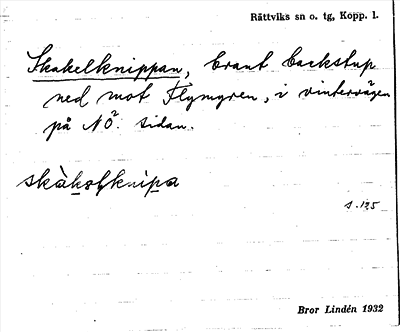 Rättviks sn o. tg, Kopp. l.
Skakelknippan, brant backstup
ned mot Flymyren, i vintervägen
på NÖ. sidan.
skàkəlknipa
s. 125
Bror Lindén 1932